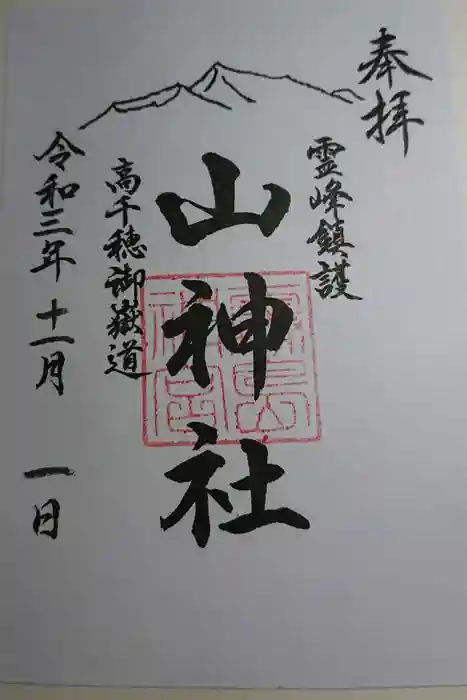 奉拝
霊峰鎮護
山神社
高千穂御嶽道
令和三年十一月一日